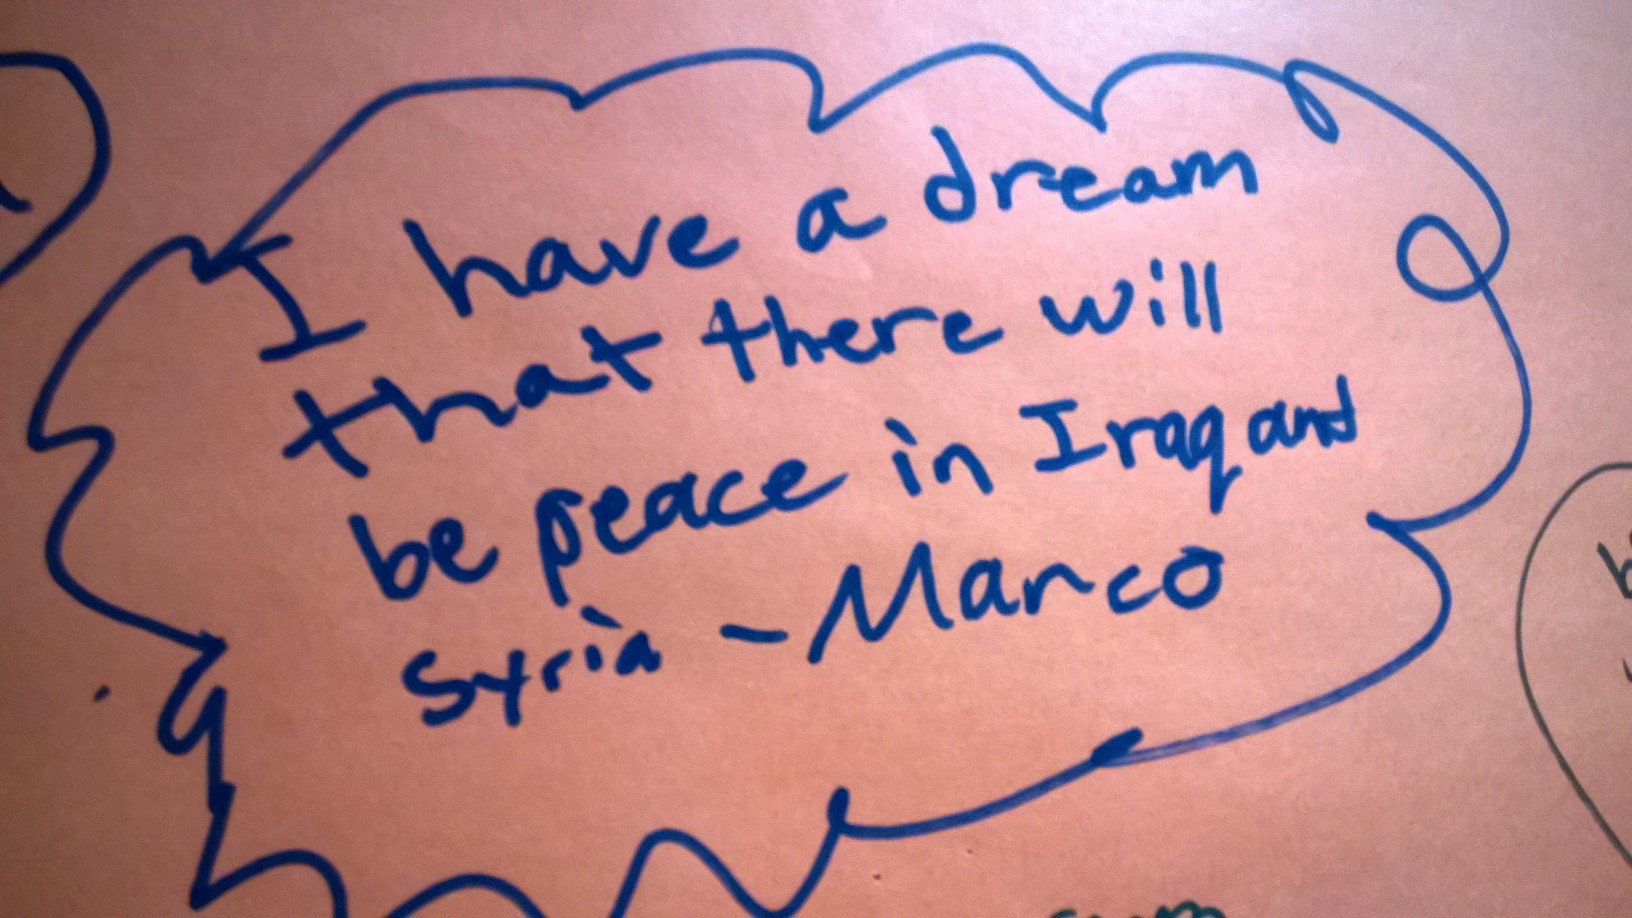 I have a dream
that there will
be peace in Iraq and
Syria - Marco